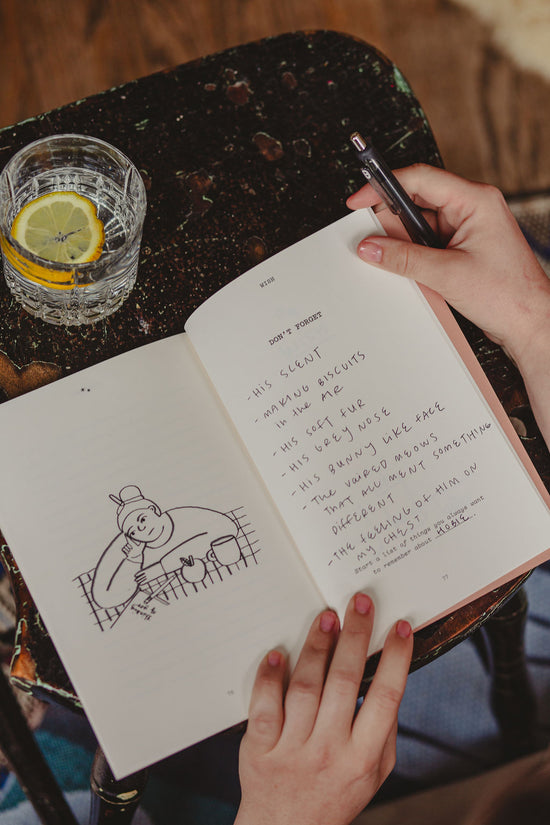 WISH
DON'T FORGET
- HIS SCENT
- MAKING BISCUITS
in the AIR
- HIS SOFT FUR
- HIS GREY NOSE
- HIS BUNNY LIKE FACE
- The VAIRED MEOWS
THAT ALL MENT SOMETHING
DIFFERENT
- THE FEELING OF HIM ON
MY CHEST
Start a list of things you always want
to remember about HOBIE..
77
76